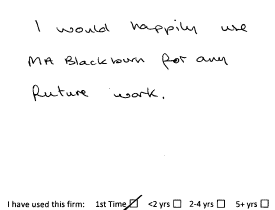 I would happily use
MA Blackburn for any
future work.
I have used this firm: 1st Time ☑ <2 yrs ☐ 2-4 yrs ☐ 5+ yrs ☐